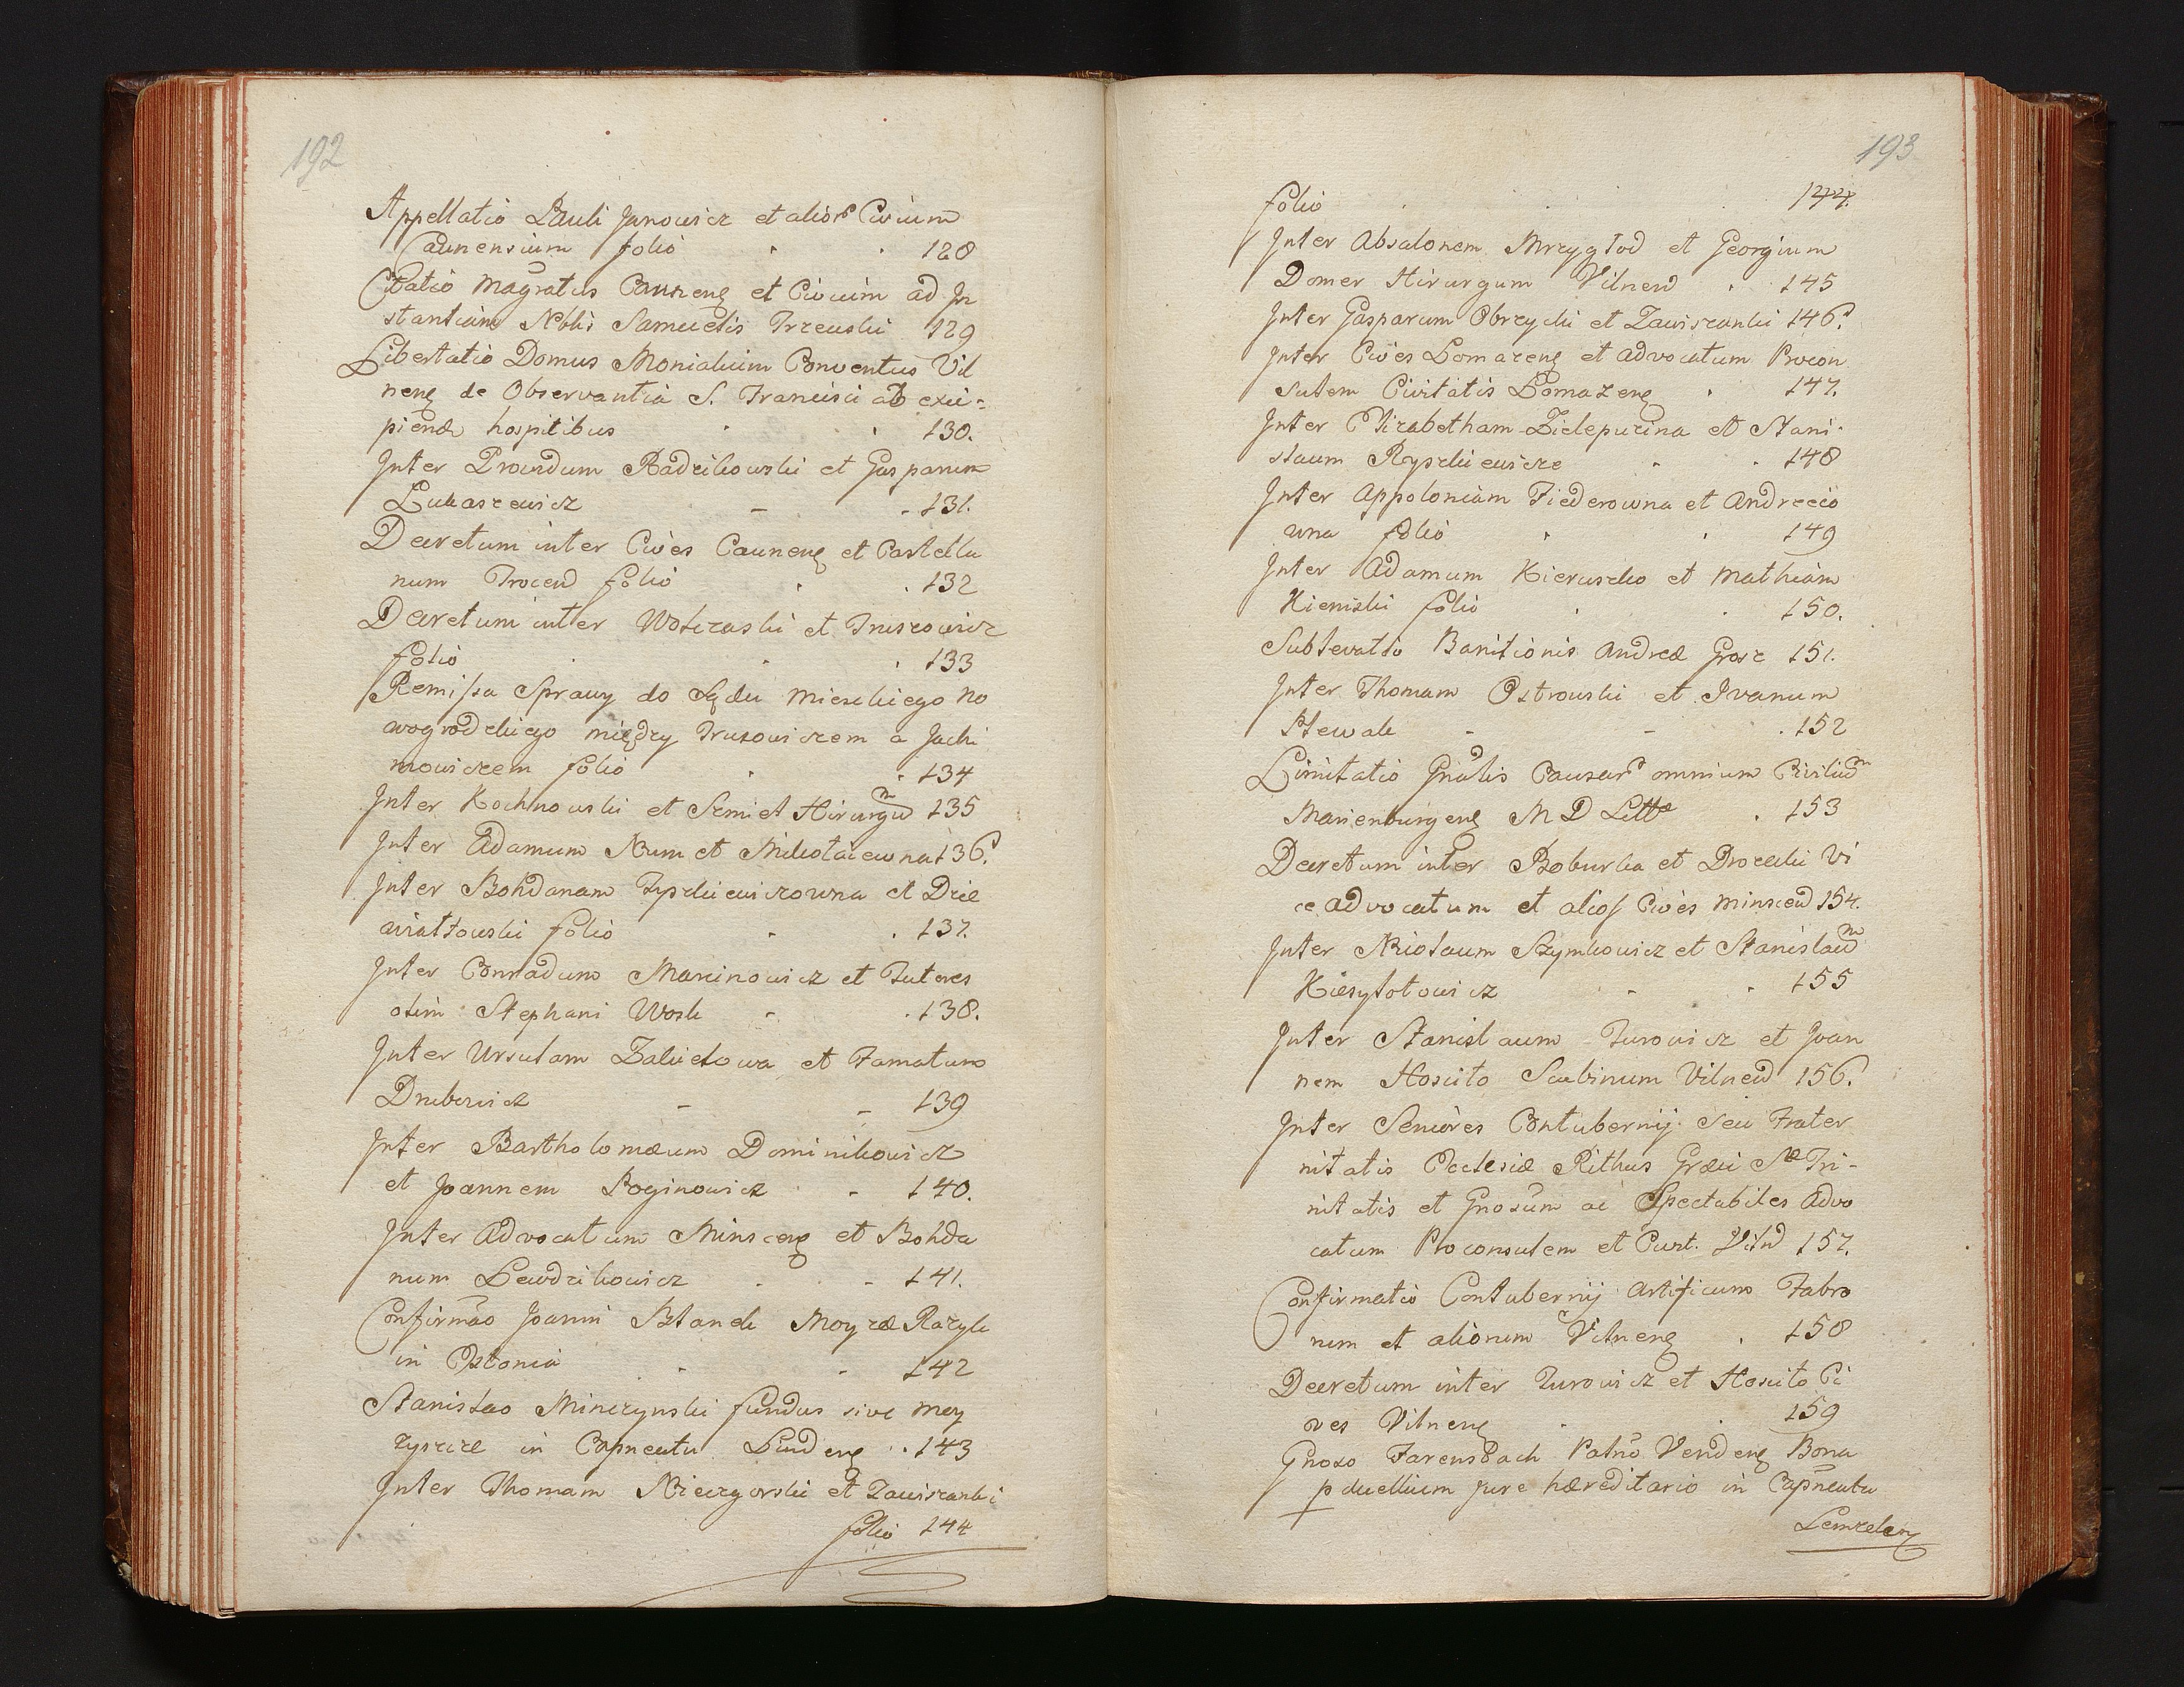 192
Appellatio Pauli Janowicz et alior Civium
Caunensium folio 128
Citatio Magratus Cauneng et Civium ad In
stantiam Nobis Samuelis Trzeuski 129
Libertatio Domus Monialium Conventus Vil
neng de Observantia S. Francisci ab exci=
piend hospitibus 130.
Inter Providum Radzikowski et Gasparum
Lukaszewicz 131.
Decretum inter Cives Cauneng et Castella
num Trocen folio 132
Decretum inter Wolczaski et
folio 133
Remissa Sprawy do Sądu Mieskiego No
wogrodzkiego między Truzowiczem a Jachi
mowiczem folio 134
Inter Kochnowski et Semiet Hirurgum 135
Inter Adamum Num et Mikołaiewna 136.
Inter Bohdanam Zyzkiewiczowna et Dzie
wiałtowski folio 137.
Inter Conradum Marcinowicz et Tutores
olim Stephani Wosk 138.
Inter Ursulam Zalietowa et Famatum
Druberwicz 139
Inter Bartholomæum Dominikowicz
et Joannem Boginowicz 140.
Inter Advocatum Minsceng et Bohda
num Lewdzikowicz 141.
Confirmao Joanni Blandk Moyzæ Razyk
in Estonia 142
Stanislao Minczynski fundus sive Moy
zyszcze in Capneatu Lindeng 143
Inter Thomam Niewzgorski et Zawiszanki
folio 144
193
folio 144.
Inter Absalonem Mrzygłod et Georgium
Domer Hirurgum Vilnen 145
Inter Gasparum Obrycki et Zawiszanki 146.
Inter Cives Lomazeng et Advocatum Procon
sulem Civitatis Lomazeng 147.
Inter Elizabetham Zielepucina et Stani-
slaum Ryszkiewicze 148
Inter Appoloniam Fiedorowna et Andrzeio
wna folio 149
Inter Adamum Kieruszko et Mathiam
Kieniski folio 150.
Sublevatio Banitionis Andreæ Grosz 151.
Inter Thomam Ostrowski et Ivanum
Stewak 152
Limitatio Gnalis Causar omnium Civilium
Marienburgeng M D Litt 153
Decretum inter Boburka et Drozecki Vi
ce advocatum et alios Cives Minscen 154.
Inter Nicolaum Szymkowicz et Stanislaum
Kiesztołtowicz 155
Inter Stanislaum Turowicz et Joan
nem Hoscito Scabinum Vilnen 156.
Inter Seniores Contubernij seu Frater
nitatis Ecclesiæ Rithus Græci Sæ Tri-
nitatis et Gnosum ac Spectabiles Advo
catum Proconsulem et Curt. Viln 157.
Confirmatio Contubernij Artificum Fabro
rum et aliorum Vilneng 158
Decretum inter Turowicz et Hoscito Ci
ves Vilneng 159
Gnoso Farensbach Patno Vendeng Bona
pduellium jure hæreditario in Capneatu
Lemzeleng